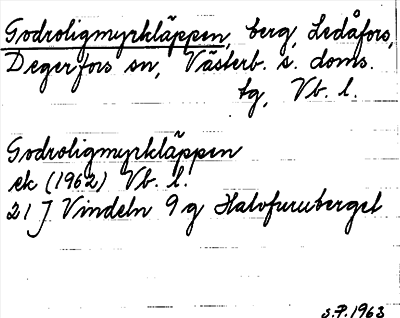 Godroligmyrkläppen, berg, Ledåfors,
Degerfors sn, Västerb. s. doms.
tg, Vb. l.
Godroligmyrkläppen
ek (1962) Vb. l.
21 J Vindeln 9 g Halvfuruberget
S.P. 1963